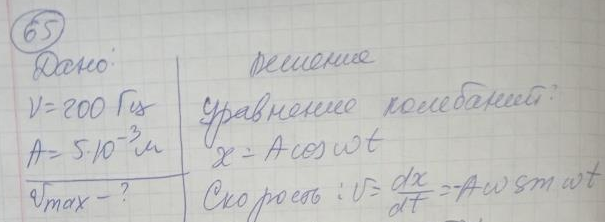 65
Дано:
ν = 200 Гц
A = 5·10⁻³ м
v_max - ?
Решение
Уравнение колебаний:
x = A cos ωt
Скорость: v = dx/dt = -Aω sin ωt